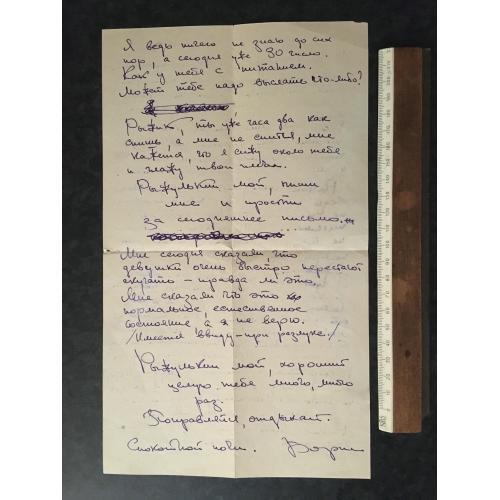 Я ведь ничего не знаю до сих
пор, а сегодня уже 30 число.
Как у тебя с питанием.
Может тебе надо выслать что-либо?
Рыжик, ты уже часа два как
спишь, а мне не спится, мне
кажется, что я сижу около тебя
и глажу твои
Рыжулькин мой, пиши
мне и прости
за сегодняшнее письмо...
Мне сегодня сказали что
девушки очень быстро перестают
скучать – правда ли это.
Мне сказали что это
нормальное, естественное
состояние а я не верю.
/Имеется ввиду – при разлуке./
Рыжулькин мой, хороший
целую тебя много, много
раз.
Поправляйся, отдыхай.
Спокойной ночи.